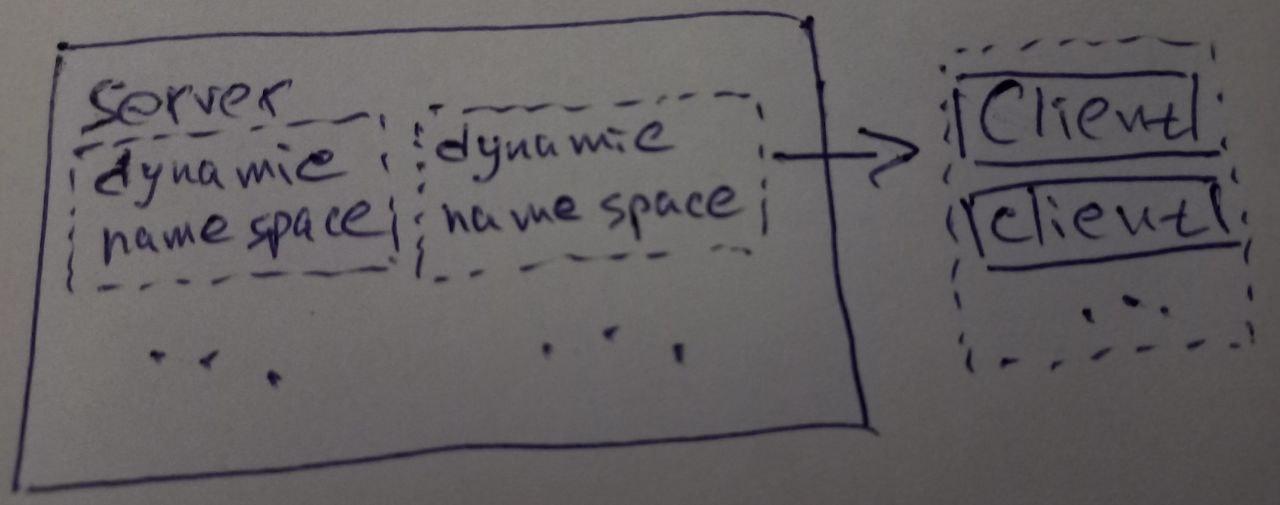 Server
dynamic
name space
dynamic
name space
Client
client